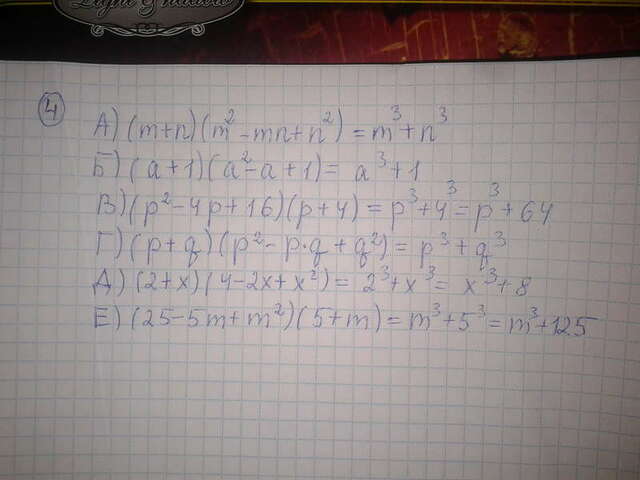 Light & natural
4
А) (m+n)(m²-mn+n²) = m³+n³
Б) (a+1)(a²-a+1)= a³+1
В) (p²-4p+16)(p+4) = p³+4³= p³+64
Г) (p+q)(p²-p·q+q²)= p³+q³
Д) (2+x)(4-2x+x²)= 2³+x³= x³+8
Е) (25-5m+m²)(5+m)= m³+5³= m³+125